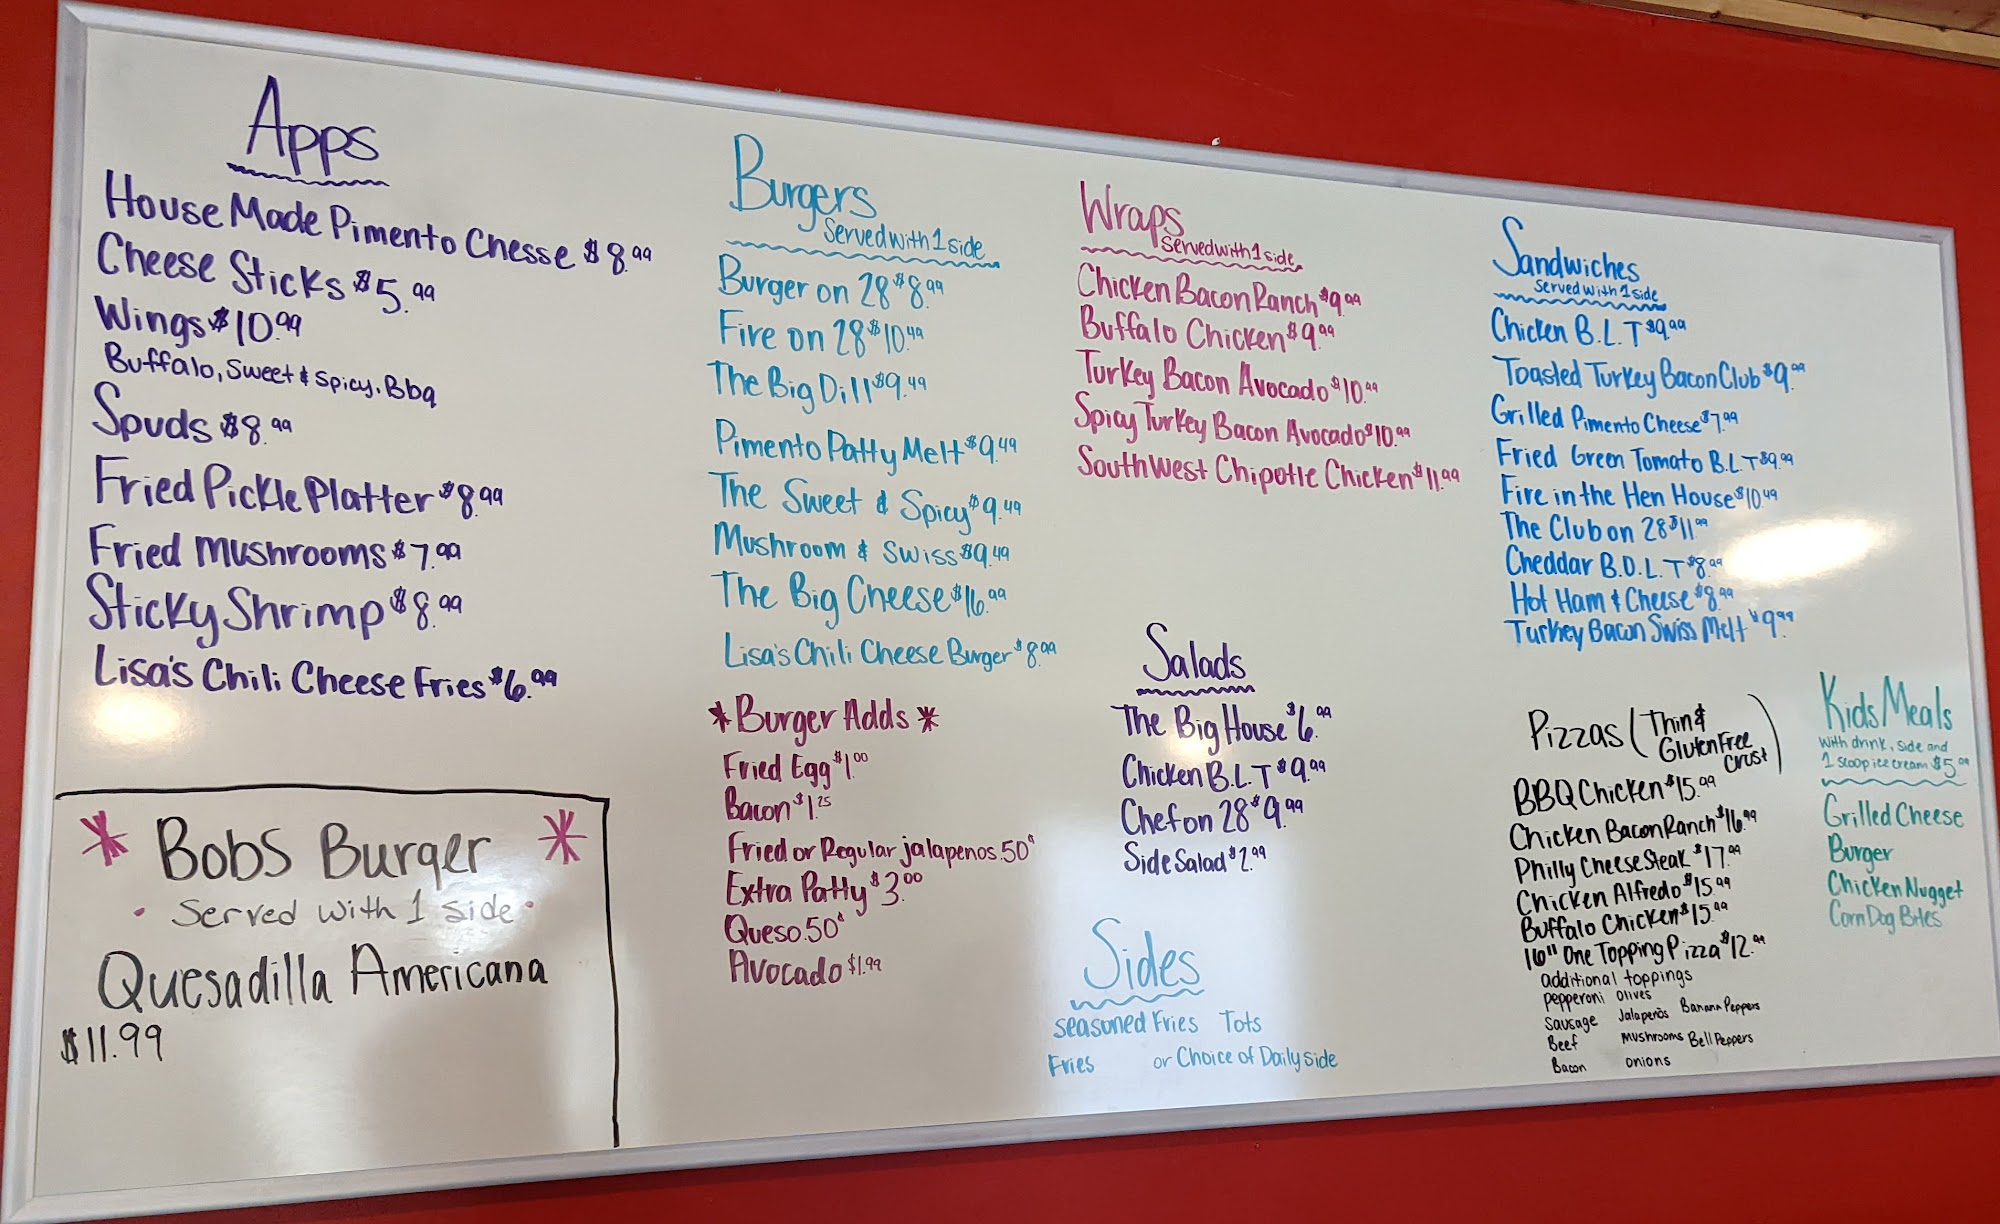 Apps
House Made Pimento Chesse $8.99
Cheese Sticks $5.99
Wings $10.99
Buffalo, Sweet & Spicy, Bbq
Spuds $8.99
Fried Pickle Platter $8.99
Fried Mushrooms $7.99
Sticky Shrimp $8.99
Lisa's Chili Cheese Fries $6.99
* Bobs Burger *
• Served with 1 side •
Quesadilla Americana
$11.99
Burgers
Served with 1 side
Burger on 28 $8.99
Fire on 28 $10.49
The Big Dill $9.49
Pimento Patty Melt $9.49
The Sweet & Spicy $9.49
Mushroom & Swiss $9.49
The Big Cheese $16.99
Lisa's Chili Cheese Burger $8.99
* Burger Adds *
Fried Egg $1.00
Bacon $1.25
Fried or Regular jalapenos .50¢
Extra Patty $3.00
Queso .50¢
Avocado $1.99
Wraps
Served with 1 side
Chicken Bacon Ranch $9.99
Buffalo Chicken $9.99
Turkey Bacon Avocado $10.99
Spicy Turkey Bacon Avocado $10.99
SouthWest Chipotle Chicken $11.99
Salads
The Big House $6.99
Chicken B.L.T $9.99
Chef on 28 $9.99
Side Salad $2.99
Sides
Seasoned Fries Tots
Fries or Choice of Daily side
Sandwiches
Served with 1 side
Chicken B.L.T $9.99
Toasted Turkey Bacon Club $9.99
Grilled Pimento Cheese $7.99
Fried Green Tomato B.L.T $9.99
Fire in the Hen House $10.49
The Club on 28 $11.99
Cheddar B.D.L.T $8.99
Hot Ham & Cheese $8.99
Turkey Bacon Swiss Melt $9.99
Pizzas (Thin & Gluten Free Crust)
BBQ Chicken $15.99
Chicken Bacon Ranch $16.99
Philly Cheese Steak $17.99
Chicken Alfredo $15.99
Buffalo Chicken $15.99
16" One Topping Pizza $12.99
additional toppings
pepperoni olives
Sausage Jalapeños Banana Peppers
Beef mushrooms Bell Peppers
Bacon onions
Kids Meals
with drink, side and
1 scoop ice cream $5.99
Grilled Cheese
Burger
Chicken Nugget
Corn Dog Bites